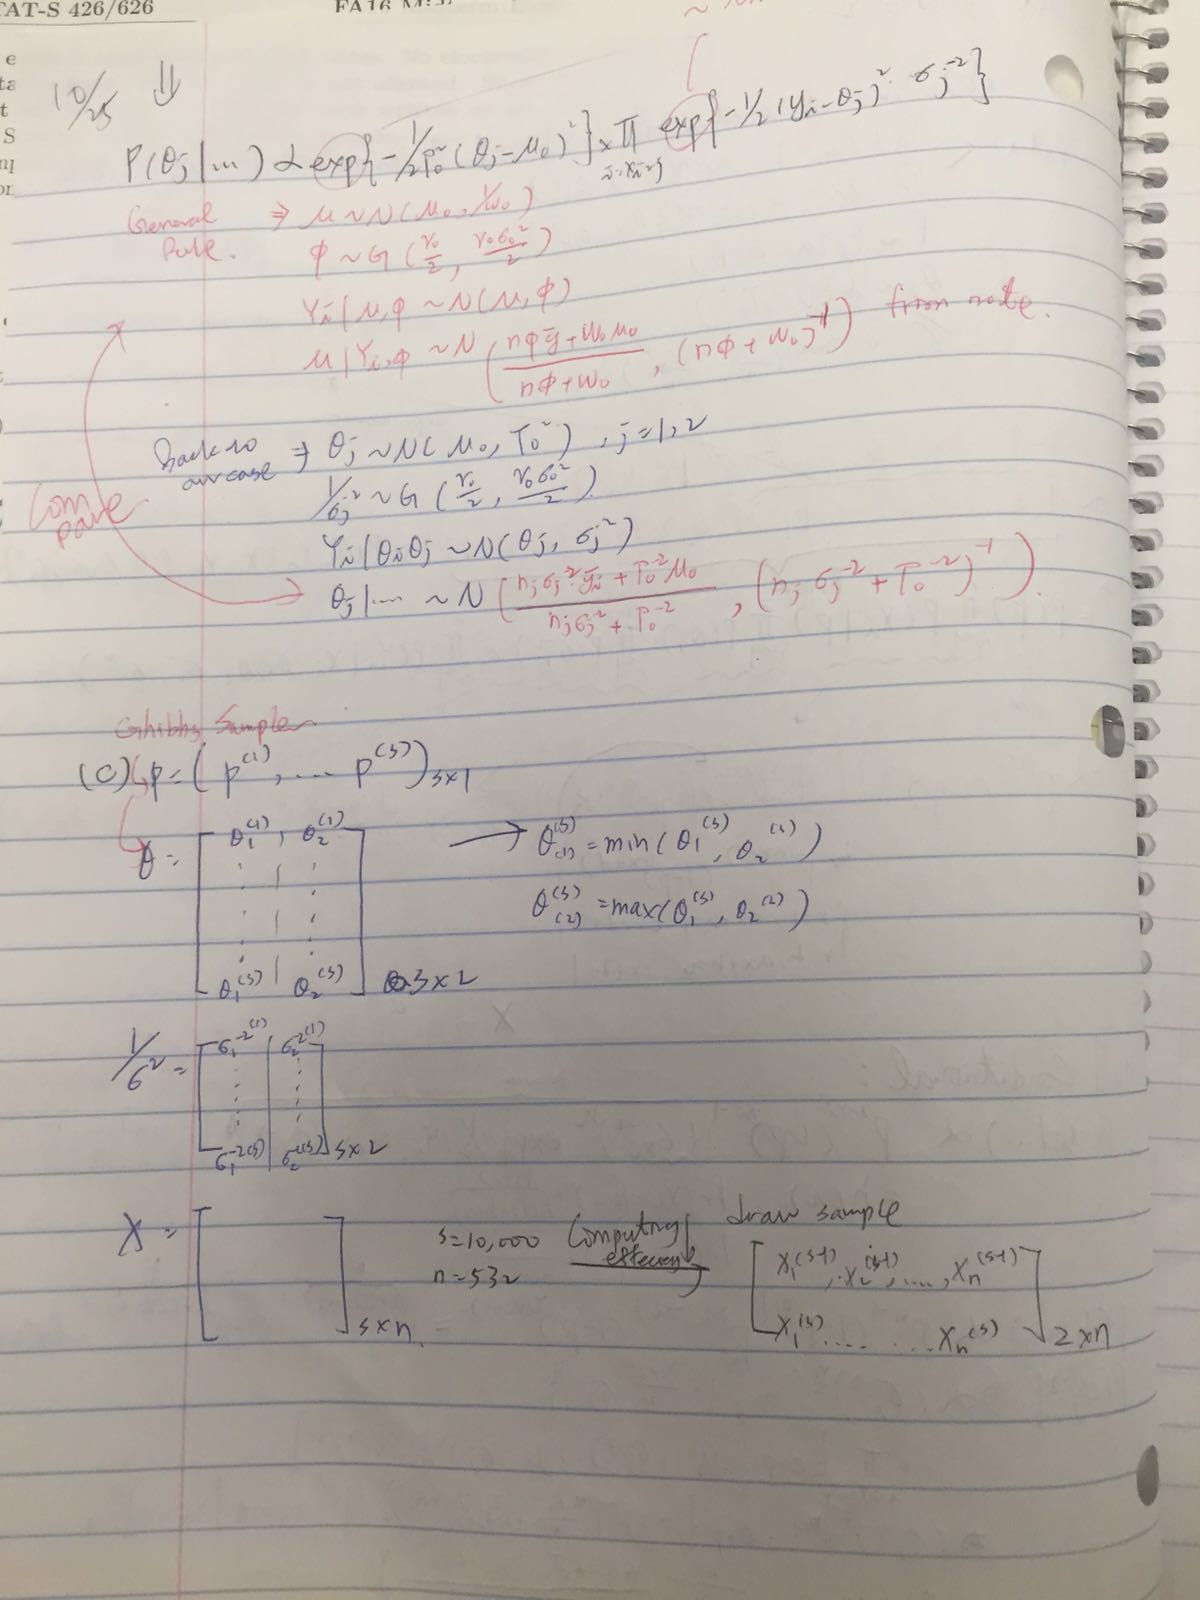 TAT-S 426/626
10/25 ⇓
P(θj|...) ∝ exp{-1/2τ0²(θj-μ0)²} × Π i:xi=j exp{-1/2(yi-θj)² σj^-2}
General Rule. ⇒ μ ~ N(μ0, 1/ω0)
φ ~ G(ν0/2, ν0σ0²/2)
Yi|μ,φ ~ N(μ,φ)
μ|Yi,φ ~ N(nφȳ+ω0μ0 / nφ+ω0, (nφ+ω0)^-1) from note.
Back to our case ⇒ θj ~ N(μ0, τ0²), j=1,2
1/σj² ~ G(ν0/2, ν0σ0²/2)
Compare
Yi|θiθj ~ N(θj, σj²)
θj|... ~ N(njσj^-2 ȳi + τ0^-2 μ0 / njσj^-2 + τ0^-2, (njσj^-2 + τ0^-2)^-1).
Ghibbs Sample
(C) p = (p^(1), .... p^(s)) s×1
θ = [θ1^(1), θ2^(1)
θ1^(s) | θ2^(s)] s×2
→ θ(1)^(s) = min(θ1^(s), θ2^(s))
θ(2)^(s) = max(θ1^(s), θ2^(2))
1/σ² = [σ1^-2(1) | σ2^-2(1)
σ1^-2(s) | σ2^-2(s)] s×2
X = [ ] s×n
s=10,000
n=532
Computing
draw sample
[x1^(s-1), x2^(s-1), ...., xn^(s-1)
x1^(s) .... .... xn^(s)] 2×n